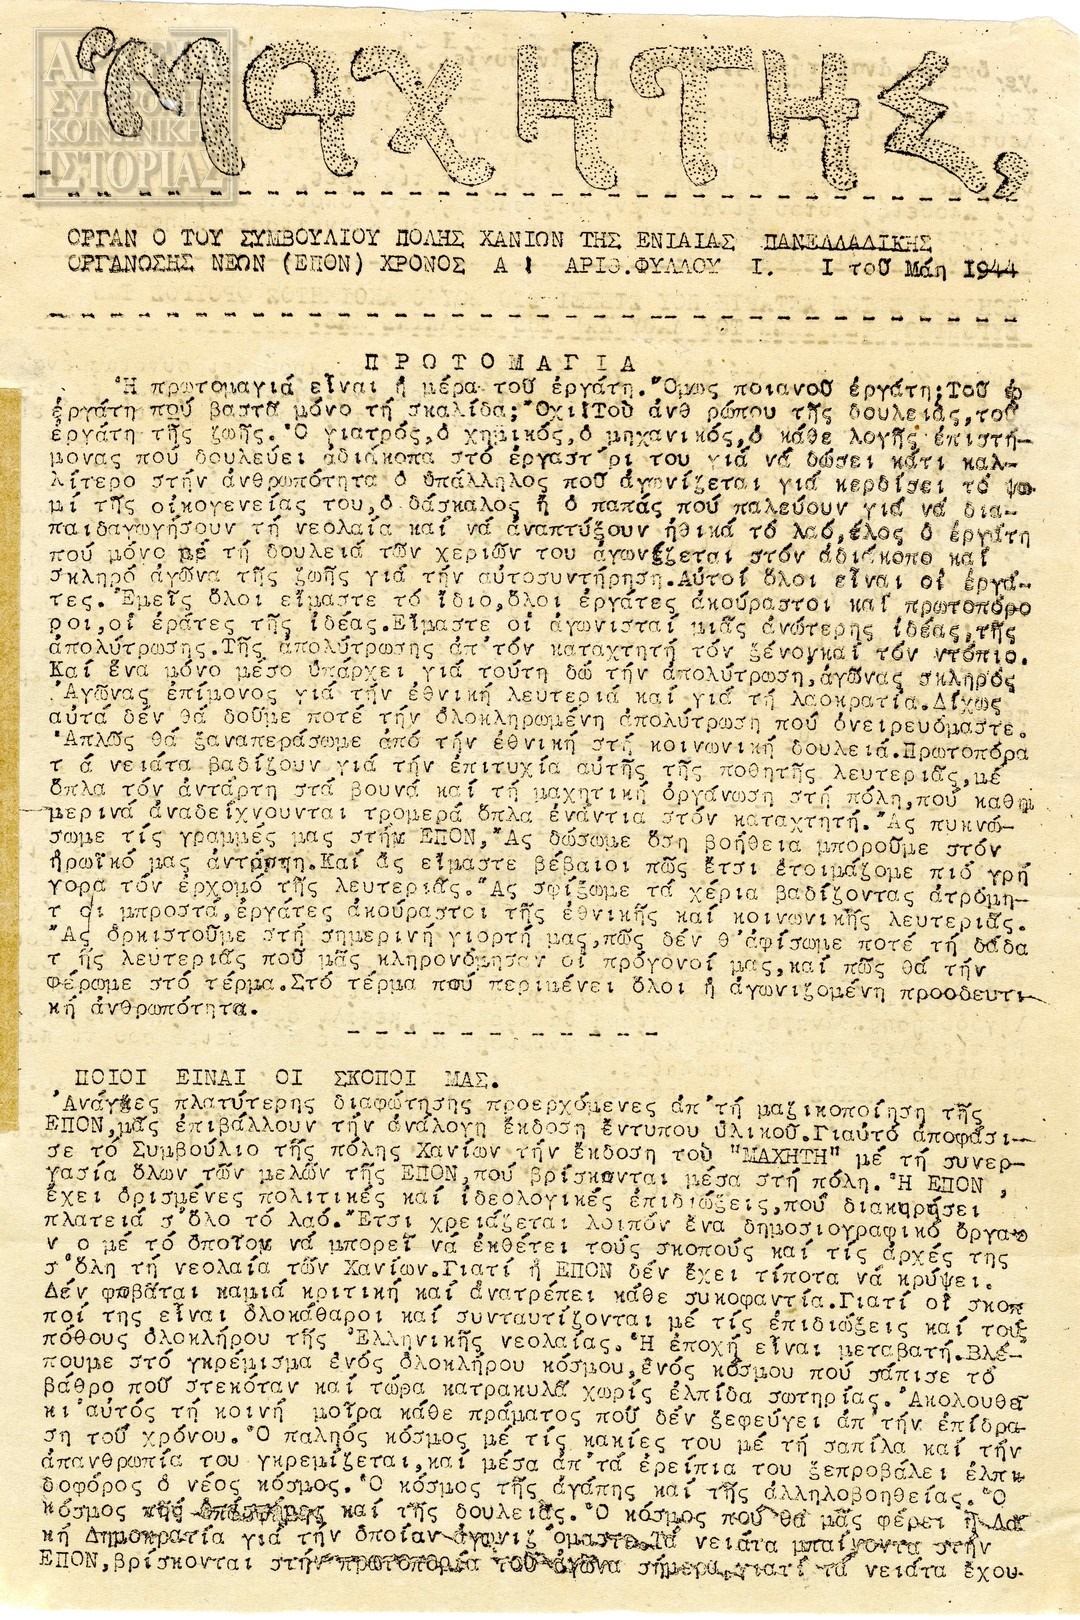 ΑΡΧΕΙΑ
ΣΥΓΧΡΟΝΗΣ
ΚΟΙΝΩΝΙΚΗΣ
ΙΣΤΟΡΙΑΣ
"ΜΑΧΗΤΗΣ,,
ΟΡΓΑΝ Ο ΤΟΥ ΣΥΜΒΟΥΛΙΟΥ ΠΟΛΗΣ ΧΑΝΙΩΝ ΤΗΣ ΕΝΙΑΙΑΣ ΠΑΝΕΛΛΑΔΙΚΗΣ
ΟΡΓΑΝΩΣΗΣ ΝΕΩΝ (ΕΠΟΝ) ΧΡΟΝΟΣ Α' ΑΡΙΘ.ΦΥΛΛΟΥ Ι. Ι τοῦ Μάη 1944
ΠΡΩΤΟΜΑΓΙΑ
Ἡ πρωτομαγιά εἶναι ἡ μέρα τοῦ ἐργάτη. Ὅμως ποιανοῦ ἐργάτη; Τοῦ
ἐργάτη πού βαστᾶ μόνο τή σκαλίδα; Ὄχι! Τοῦ ἀνθ ρώπου τῆς δουλειᾶς, τοῦ
ἐργάτη τῆς ζωῆς. Ὁ γιατρός, ὁ χημικός, ὁ μηχανικός, ὁ κάθε λογῆς ἐπιστή-
μονας πού δουλεύει ἀδιάκοπα στό ἐργαστ ρι του γιά νά δώσει κάτι καλ-
λίτερο στήν ἀνθρωπότητα ὁ ὑπάλληλος πού ἀγωνίζεται γιά κερδίσει τό ψω-
μί τῆς οἰκογενείας του, ὁ δάσκαλος ἤ ὁ παπάς πού παλεύουν γιά νά δια-
παιδαγωγήσουν τή νεολαία καί νά ἀναπτύξουν ἠθικά τό λαό, έλος ὁ ἐργάτη
πού μόνο μέ τή δουλειά τῶν χεριῶν του ἀγωνίζεται στόν ἀδιάκοπο καί
σκληρό ἀγῶνα τῆς ζωῆς γιά τήν αὐτοσυντήρηση. Αὐτοί ὅλοι εἶναι οἱ ἐργά-
τες. Ἐμεῖς ὅλοι εἴμαστε τό ἴδιο, ὅλοι ἐργάτες ἀκούραστοι καί πρωτοπόρο
ροι, οἱ ἐράτες τῆς ἰδέας. Εἴμαστε οἱ ἀγωνισταί μιᾶς ἀνώτερης ἰδέας, τῆς
ἀπολύτρωσης. Τῆς ἀπολύτρωσης ἀπ' τόν καταχτητή τόν ξένο καί τόν ντόπιο.
Καί ἕνα μόνο μέσο ὑπάρχει γιά τούτη δῶ τήν ἀπολύτρωση, ἀγῶνας σκληρός
Ἀγῶνας ἐπίμονος γιά τήν ἐθνική λευτεριά καί γιά τή λαοκρατία. Δίχως
αὐτά δέν θά δοῦμε ποτέ τήν ὁλοκληρωμένη ἀπολύτρωση πού ὀνειρευόμαστε.
Ἁπλῶς θά ξαναπεράσωμε ἀπό τήν ἐθνική στή κοινωνική δουλειά. Πρωτοπόρα
τ ά νειάτα βαδίζουν γιά τήν ἐπιτυχία αὐτῆς τῆς ποθητῆς λευτεριᾶς, μέ
ὅπλα τόν ἀντάρτη στά βουνά καί τή μαχητική ὀργάνωση στή πόλη, πού καθη
μερινά ἀναδείχνουνται τρομερά ὅπλα ἐνάντια στόν καταχτητή. Ἄς πυκνώ-
σωμε τίς γραμμές μας στήν ΕΠΟΝ, Ἄς δώσωμε ὅση βοήθεια μποροῦμε στόν
ἡρωϊκό μας ἀντάρτη. Καί ἄς εἴμαστε βέβαιοι πώς ἔτσι ἑτοιμάζομε πιό γρή
γορα τόν ἐρχομό τῆς λευτεριᾶς. Ἄς σφίξωμε τά χέρια βαδίζοντας ἀτρόμη-
τ οι μπροστά, ἐργάτες ἀκούραστοι τῆς ἐθνικῆς καί κοινωνικῆς λευτεριᾶς.
Ἄς ὁρκιστοῦμε στή σημερινή γιορτή μας, πώς δέν θ'ἀφίσωμε ποτέ τή δάδα
τ ῆς λευτεριᾶς πού μᾶς κληρονόμησαν οἱ πρόγονοί μας, καί πώς θά τήν
φέρωμε στό τέρμα. Στό τέρμα πού περιμένει ὅλοι ἡ ἀγωνιζομένη προοδευτι-
κή ἀνθρωπότητα.
ΠΟΙΟΙ ΕΙΝΑΙ ΟΙ ΣΚΟΠΟΙ ΜΑΣ.
Ἀνάγκες πλατύτερης διαφώτησης προερχόμενες ἀπ'τή μαζικοποίηση τῆς
ΕΠΟΝ, μᾶς ἐπιβάλλουν τήν ἀνάλογη ἔκδοση ἔντυπου ὑλικοῦ. Γιαυτό ἀποφάσι-
σε τό Συμβούλιο τῆς πόλης Χανίων τήν ἔκδοση τοῦ "ΜΑΧΗΤΗ" μέ τή συνερ-
γασία ὅλων τῶν μελῶν τῆς ΕΠΟΝ, πού βρίσκονται μέσα στή πόλη. Ἡ ΕΠΟΝ,
ἔχει ὁρισμένες πολιτικές καί ἰδεολογικές ἐπιδιώξεις, πού διακηρύσει
πλατειά σ'ὅλο τό λαό. Ἔτσι χρειάζεται λοιπόν ἕνα δημοσιογραφικό ὄργαν
ν ο μέ τό ὁποῖον νά μπορεῖ νά ἐκθέτει τούς σκοπούς καί τίς ἀρχές της
σ'ὅλη τή νεολαία τῶν Χανίων. Γιατί ἡ ΕΠΟΝ δέν ἔχει τίποτα νά κρύψει.
Δέν φοβᾶται καμιά κριτική καί ἀνατρέπει κάθε συκοφαντία. Γιατί οἱ σκοπ
ποί της εἶναι ὁλοκάθαροι καί συνταυτίζονται μέ τίς ἐπιδιώξεις καί τούς
πόθους ὁλοκλήρου τῆς Ἑλληνικῆς νεολαίας. Ἡ ἐποχή εἶναι μεταβατή. Βλέ-
πουμε στό γκρέμισμα ἑνός ὁλοκλήρου κόσμου, ἑνός κόσμου πού σάπισε τό
βάθρο πού στεκόταν καί τώρα κατρακυλᾶ χωρίς ἐλπίδα σωτηρίας. Ἀκολουθεῖ
κι'αὐτός τή κοινή μοῖρα κάθε πράματος πού δέν ξεφεύγει ἀπ'τήν ἐπίδρα-
ση τοῦ χρόνου. Ὁ παληός κόσμος μέ τίς κακίες του μέ τή σαπίλα καί τήν
ἀπανθρωπία του γκρεμίζεται, καί μέσα ἀπ'τά ἐρείπια του ξεπροβάλει ἐλπι
δοφόρος ὁ νέος κόσμος. Ὁ κόσμος τῆς ἀγάπης καί τῆς ἀλληλοβοηθείας. Ὁ
κόσμος τῆς καί τῆς δουλειᾶς. Ὁ κόσμος πού θά μᾶς φέρει ἡ Λα
κή Δημοκρατία γιά τήν ὁποίαν ἀγωνιζ όμαστε. Τά νειάτα μπαίνοντα στήν
ΕΠΟΝ, βρίσκονται στήν πρωτοπορία τοῦ ἀγῶνα σήμερα, γιατί τά νειάτα ἔχου-